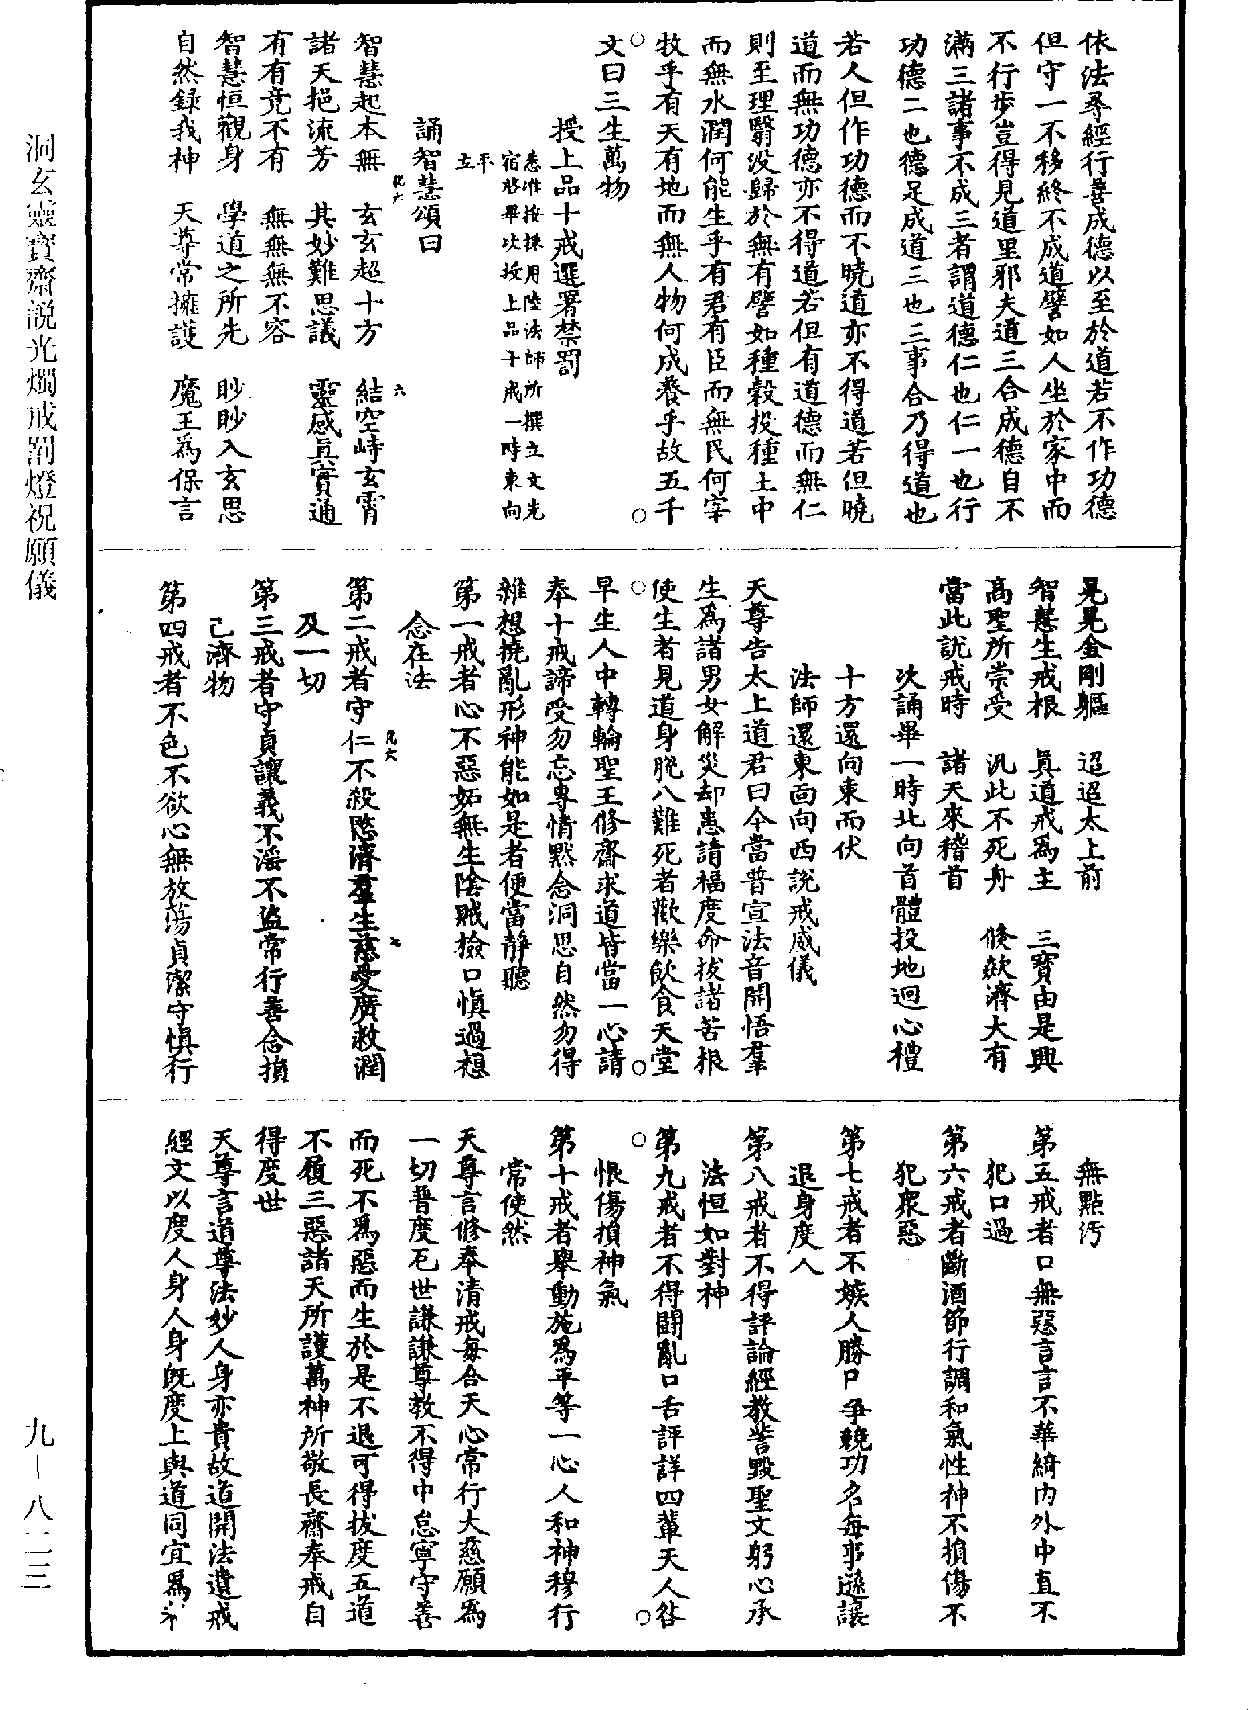 依法尋經行善成德以至於道若不作功德
但守一不移終不成道譬如人坐於家中而
不行步豈得見道里邪夫道三合成德自不
滿三諸事不成三者謂道德仁也仁一也行
功德二也德足成道三也三事合乃得道也
若人但作功德而不曉道亦不得道若但曉
道而無功德亦不得道若但有道德而無仁
則至理翳没歸於無有譬如種穀投種土中
而無水潤何能生乎有君有臣而無民何宰
牧乎有天有地而無人物何成養乎故五千
文曰三生萬物
授上品十戒選署禁罰
悉准按採用陸法師所撰立文先
宿啓畢次授上品十戒一時東向
平
立
誦智慧頌曰
智慧起本無　玄玄超十方　結空峙玄霄
諸天挹流芳　其妙難思議　靈感真實通
有有竟不有　無無無不容
智慧恒觀身　學道之所先　眇眇入玄思
自然録我神　天尊常擁護　魔王爲保言
晃晃金剛軀　迢迢太上前
智慧生戒根　真道戒爲主　三寶由是興
高聖所崇受　汎此不死舟　倏欻濟大有
當此説戒時　諸天來稽首
次誦畢一時北向首體投地迴心禮
十方還向東而伏
法師還東面向西説戒威儀
天尊告太上道君曰今當普宣法音開悟羣
生爲諸男女解災却患請福度命拔諸苦根
使生者見道身脱八難死者歡樂飲食天堂
早生人中轉輪聖王修齋求道皆當一心請
奉十戒諦受勿忘專情默念洞思自然勿得
雜想撓亂形神能如是者便當靜聽
第一戒者心不惡妬無生陰賊檢口慎過想
念在法
第二戒者守仁不殺愍濟羣生慈愛廣救潤
及一切
第三戒者守貞讓義不淫不盗常行善念損
己濟物
第四戒者不色不欲心無放蕩貞潔守慎行
無點汚
第五戒者口無惡言言不華綺内外中直不
犯口過
第六戒者斷酒節行調和氣性神不損傷不
犯衆惡
第七戒者不嫉人勝己爭競功名每事遜讓
退身度人
第八戒者不得評論經教訾毀聖文躬心承
法恒如對神
第九戒者不得鬪亂口舌評詳四輩天人咎
恨傷損神氣
第十戒者舉動施爲平等一心人和神穆行
常使然
天尊言修奉清戒每合天心常行大慈願爲
一切普度厄世謙謙尊教不得中怠寧守善
而死不爲惡而生於是不退可得拔度五道
不履三惡諸天所護萬神所敬長齋奉戒自
得度世
天尊言道尊法妙人身亦貴故道開法遺戒
經文以度人身人身既度上與道同宜爲
洞玄靈寶齋説光燭戒罰燈祝願儀
九—八二三